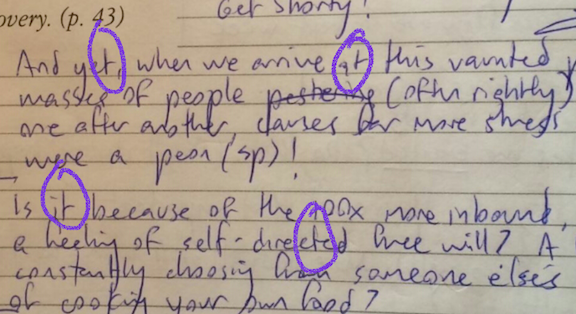 overy. (p. 43)
Get Shorty!
And yet, when we arrive at this vaunted
masses of people pestering (often rightly)
one after another, causes far more stress
were a peon (sp)!
Is it because of the 100x more inbound,
a feeling of self-directed free will? A
constantly choosing from someone else's
of cooking your own food?